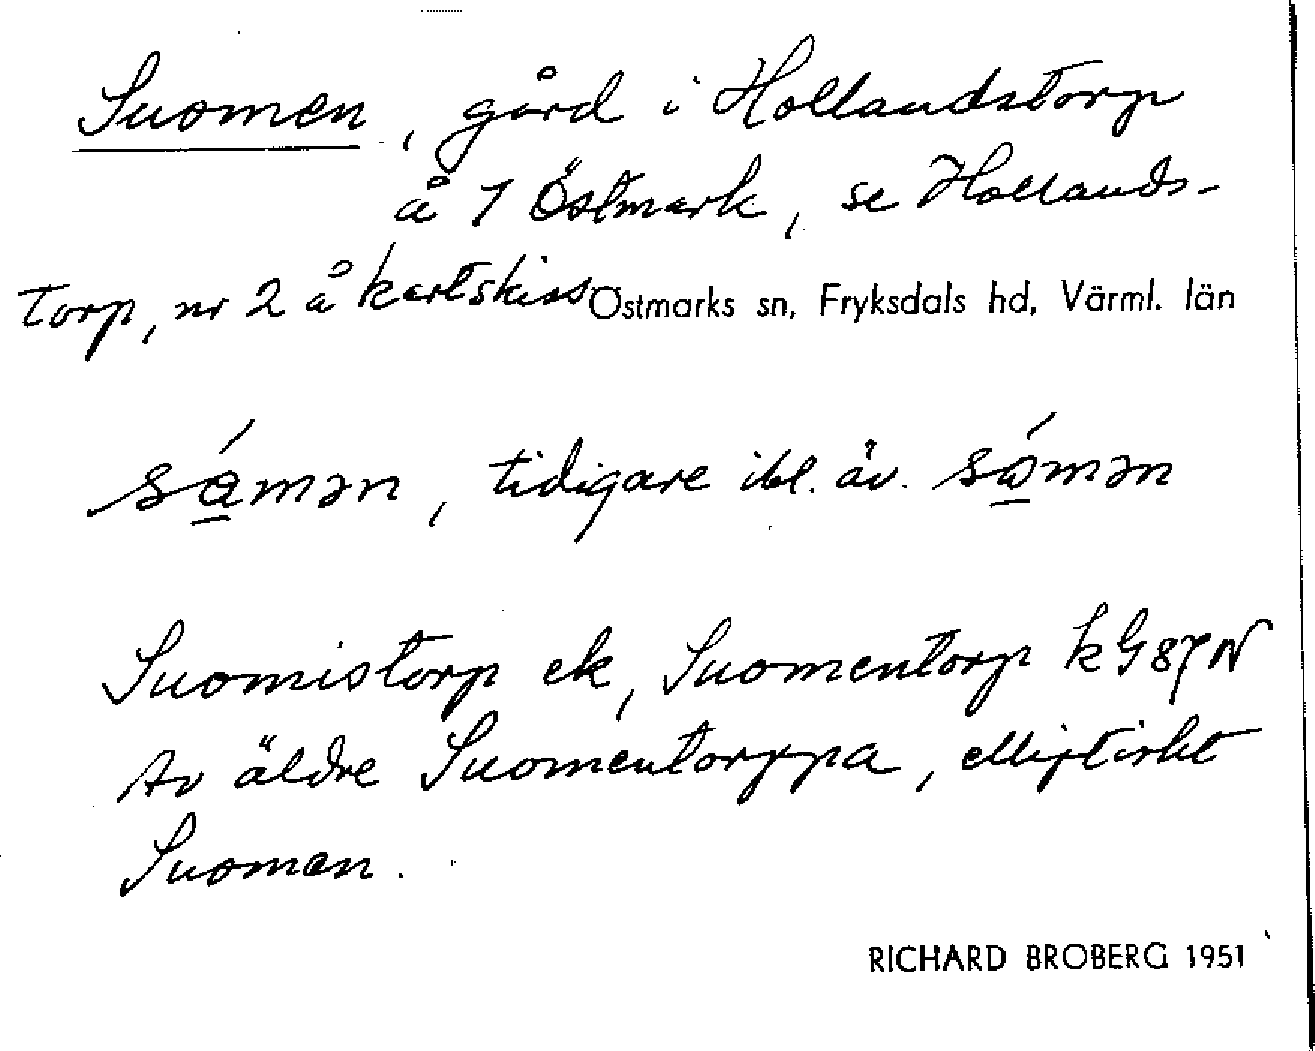 Suomen, gård i Hollandstorp
å 7 Östmark, se Hollands-
torp, nr 2 å kartskiss Östmarks sn, Fryksdals hd, Värml. län
sá̱mən, tidigare ibl. äv. sώ̱mən
Suomistorp ek, Suomentorp k G 87 N
Av äldre Suomentorppa, elliptiskt
Suomen.
RICHARD BROBERG 1951